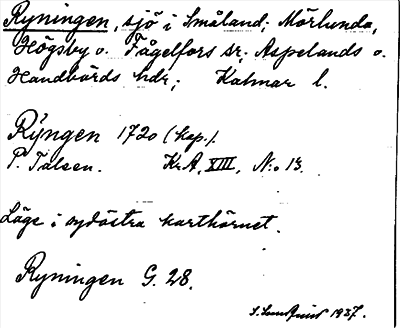 Ryningen, sjö i Småland; Mörlunda,
Högsby o. Fågelfors sr; Aspelands o.
Handbörds hdr; Kalmar l.
Rÿngen 1720 (kop.).
P. Talsen. Kr.A. XIII, N:o 13.
Läge i sydöstra karthörnet.
Ryningen G. 28.
1937.